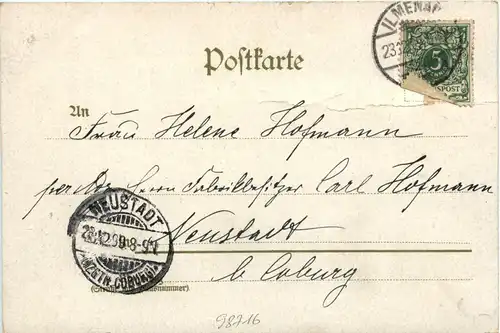 ILMENAU
23.12.
5
POST
Postkarte
An
Frau Helene Hofmann
per Adr. Herrn Fabrikbesitzer Carl Hofmann
Neustadt
b Coburg
NEUSTADT
23.12.99.8-9
(HERZGTH. COBURG)
98716